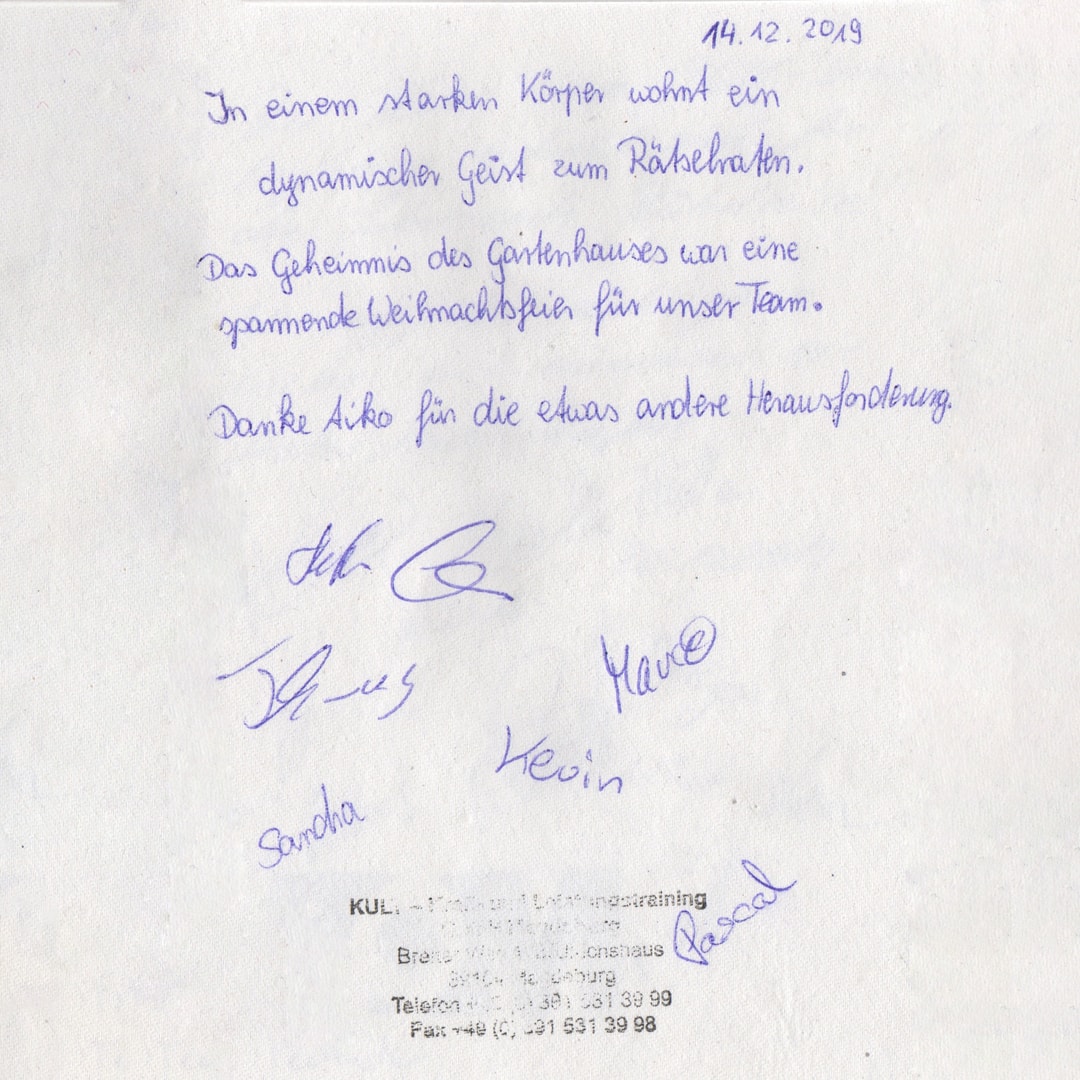 14.12.2019
In einem starken Körper wohnt ein
dynamischer Geist zum Rätselraten.
Das Geheimnis des Gartenhauses war eine
spannende Weihnachtsfeier für unser Team.
Danke Aiko für die etwas andere Herausforderung.
Marco
Kevin
Sandra
Pascal
und Leistungstraining
Telefon 531 39 99
Fax +49 (0) 391 531 39 98